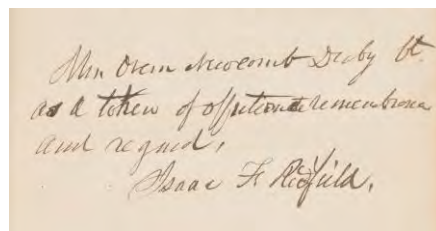 Mrs Orem Newcomb Derby Vt.
as a token of affectionate remembrance
and regard,
Isaac F. Redfield.